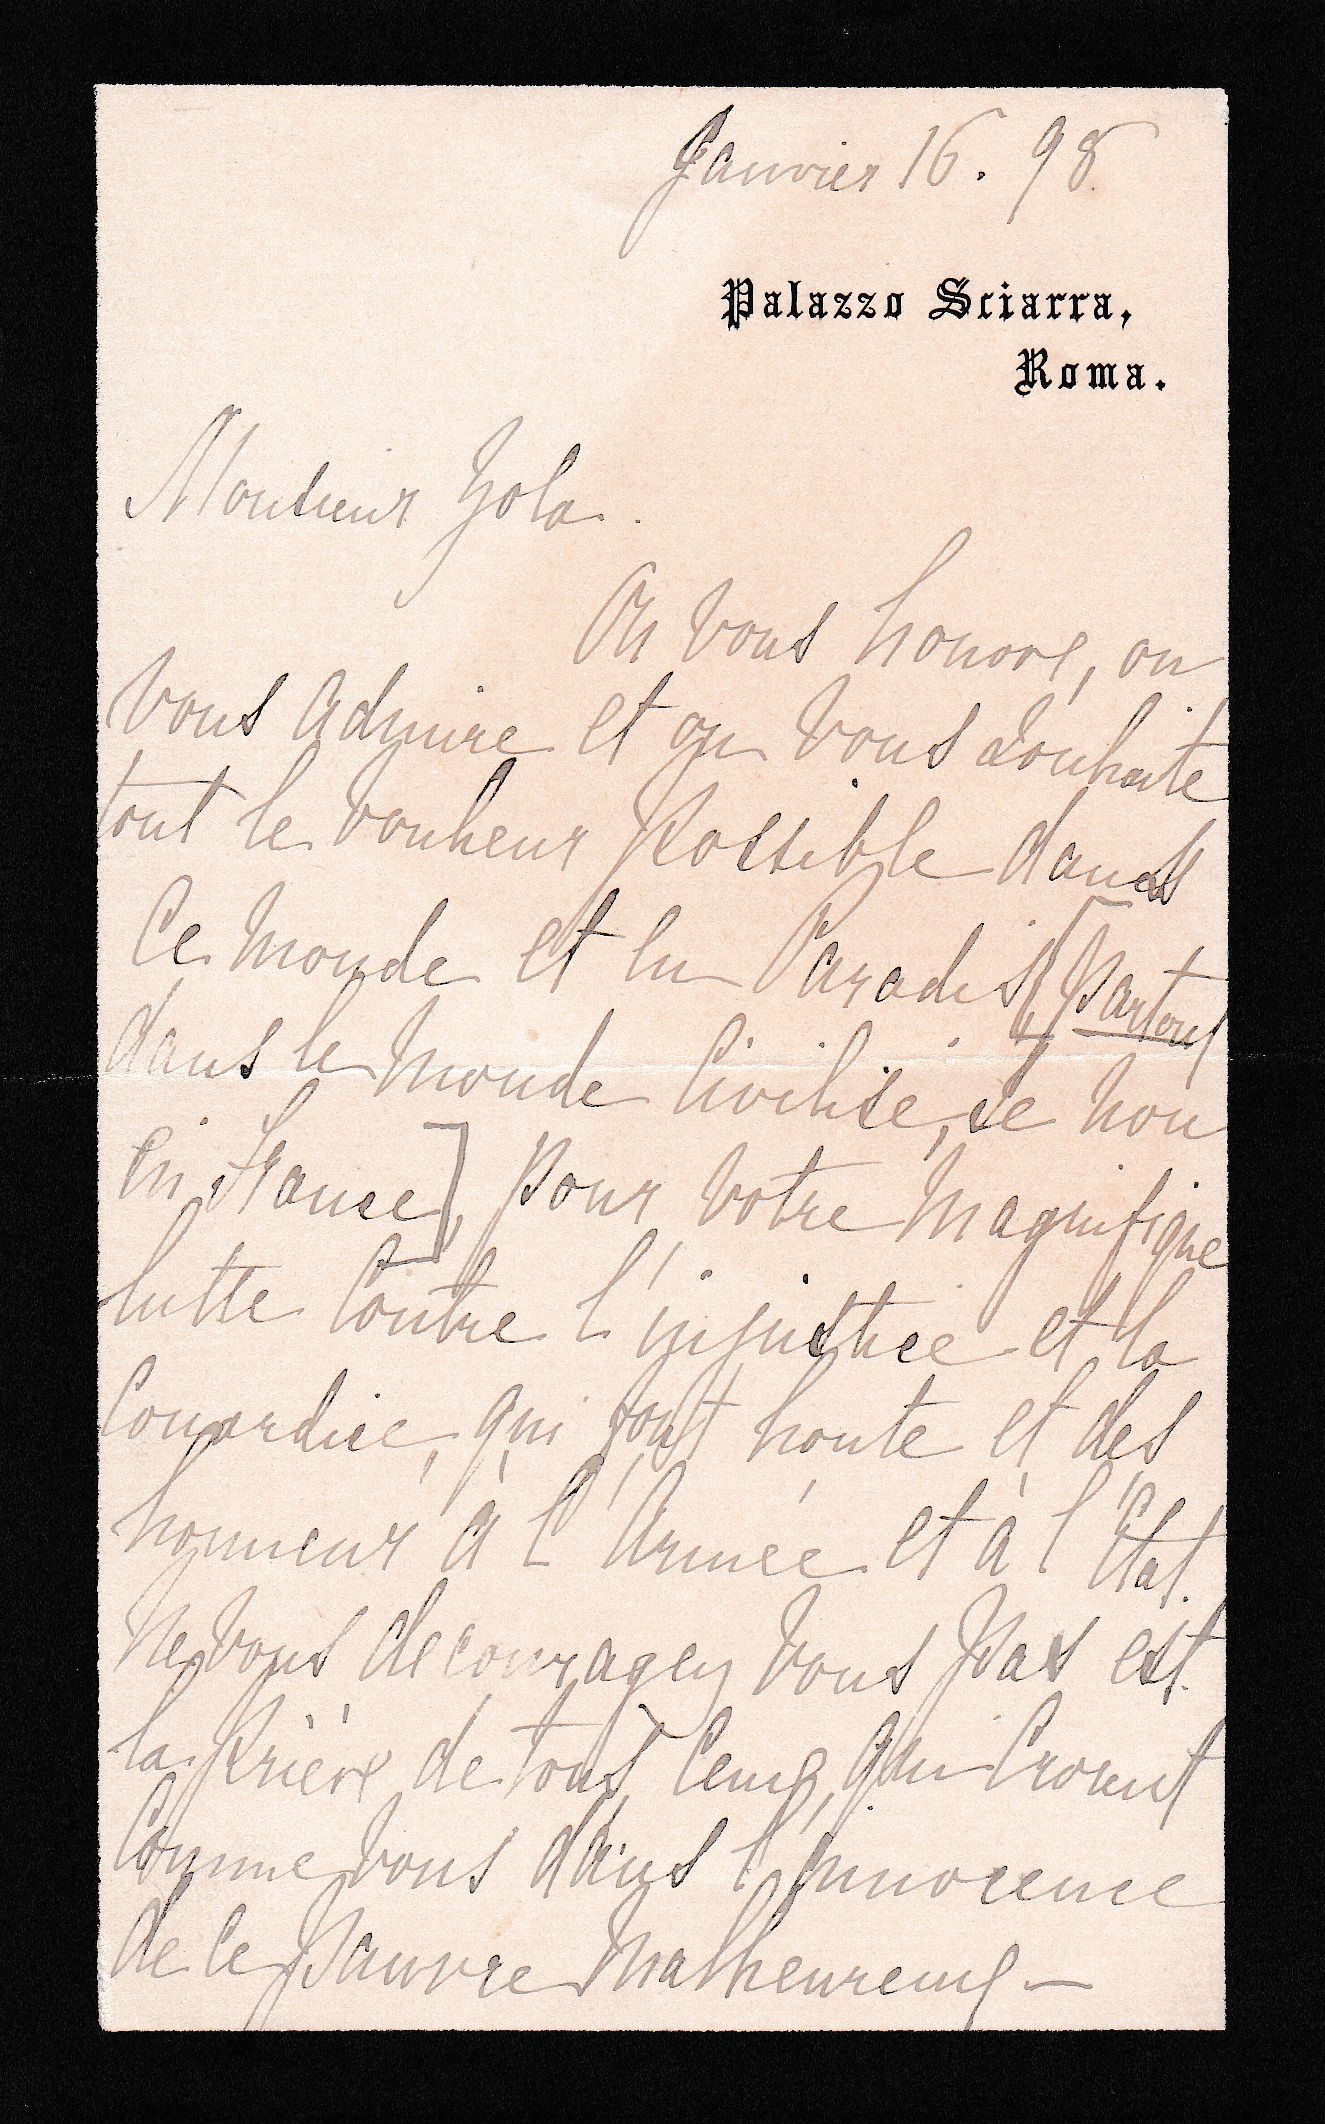 Janvier 16. 98.
Palazzo Sciarra,
Roma.
Monsieur Zola.
On vous honore, on
vous admire et on vous souhaite
tout le bonheur possible dans
ce monde et en Paradis [partout
dans le monde civilisé, se non
en France], pour votre magnifique
lutte contre l'injustice et la
Couardice, qui font honte et des
honneur à l'Armée et à l'État.
Ne vous decouragez vous pas est
la prière de tous ceux, qui croient
comme vous dans l'innocence
de ce pauvre malheureux —